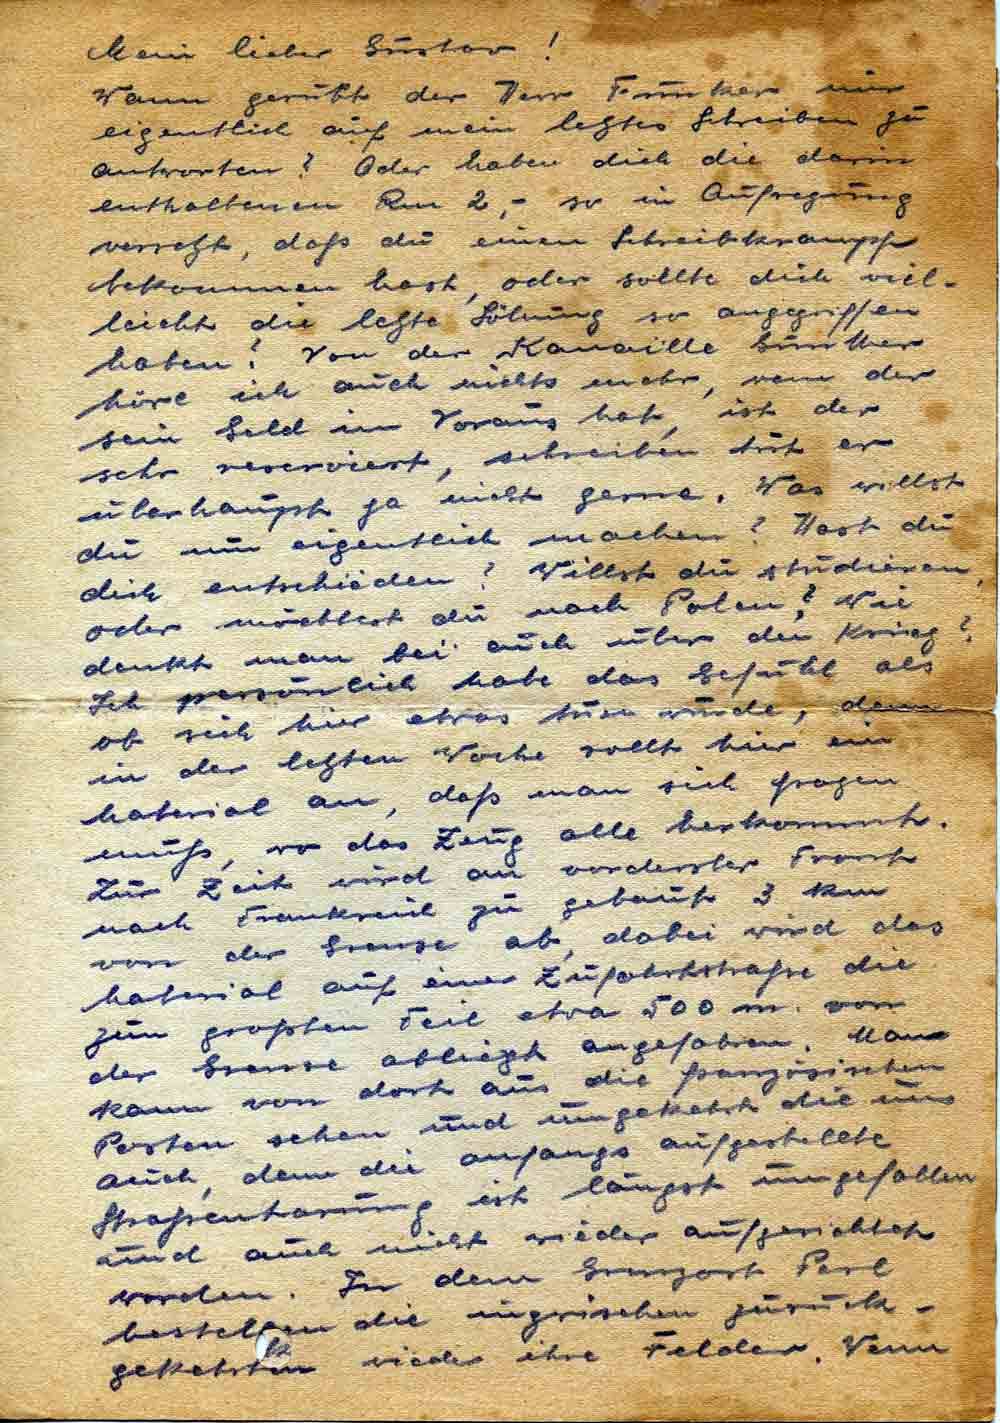 Mein lieber Gustav!
Wann geruht der Herr Funker mir
eigentlich auf mein letztes Schreiben zu
antworten? Oder haben dich die darin
enthaltenen Rm 2,- so in Aufregung
versetzt, daß du einen Schreibkrampf
bekommen hast, oder sollte dich viel-
leicht die letzte Löhnung so angegriffen
haben? Von der Kanaille Günther
höre ich auch nichts mehr, wenn der
sein Geld im Voraus hat, ist der
sehr reserviert, schreiben tut er
überhaupt ja nicht gerne. Was willst
du nun eigentlich machen? Hast du
dich entschieden? Willst du studieren,
oder möchtest du nach Polen? Wie
denkt man bei euch über den Krieg?
Ich persönlich habe das Gefühl als
ob sich hier etwas tun würde, denn
in der letzten Woche rollt hier ein
Material an, daß man sich fragen
muß, wo das Zeug alle herkommt.
Zur Zeit wird an vorderster Front
nach Frankreich zu gebaut 3 km
von der Grenze ab, dabei wird das
Material auf einer Zufahrtstraße die
zum großten Teil etwa 500 m. von
der Grenze abliegt angefahren. Man
kann von dort aus die französischen
Posten sehen und umgekehrt die uns
auch, denn die anfangs aufgestellte
Straßentarnung ist längst umgefallen
und auch nicht wieder aufgerichtet
worden. In dem Grenzort Perl
bestellen die inzwischen zurück-
gekehrten wieder ihre Felder. Wenn